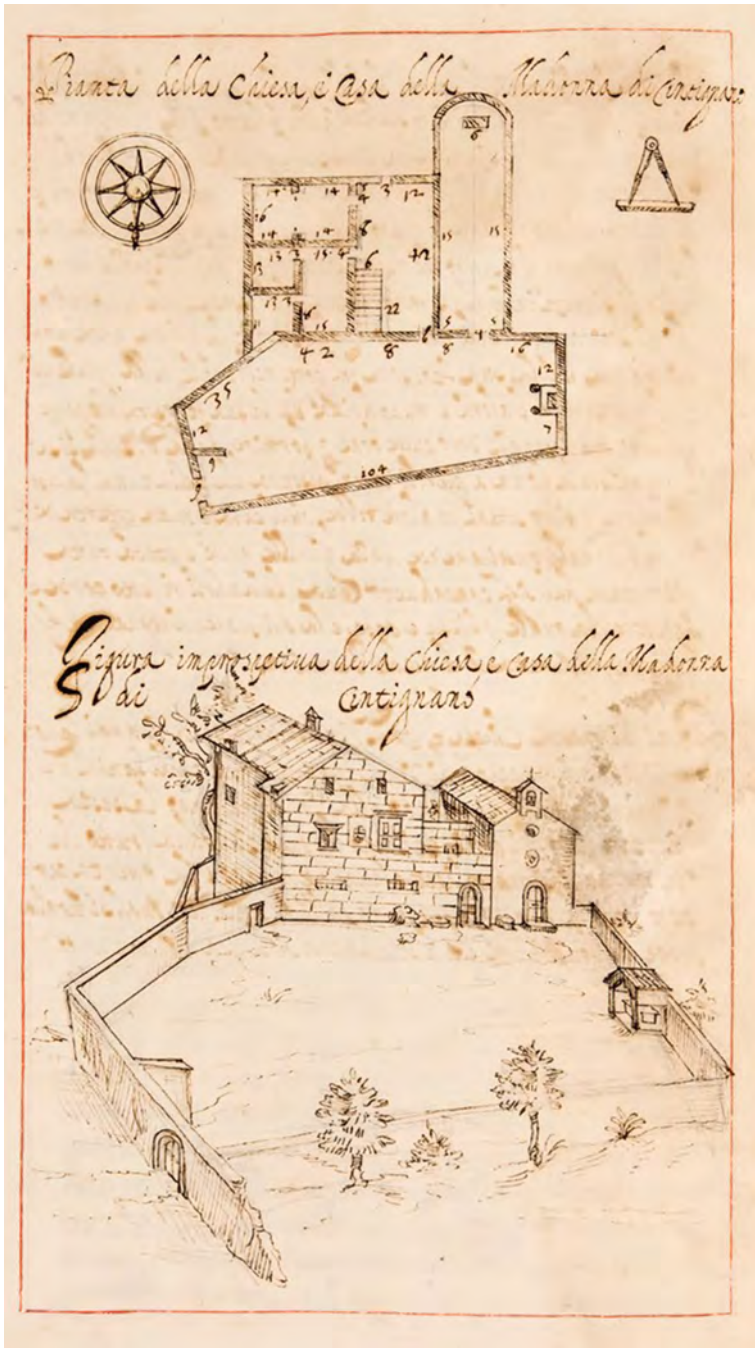 Pianta della Chiesa, e Casa della Madonna di Cintignano
6
14 14 4 3 12
16 8
14 2 14 15 15
13 15 4 6 42
13
13 3
8 22
11 15 6 5 4 5
42 8 8 16
12
35
12 7
9
104
9
Figura improspetiua della Chiesa, e Casa della Madonna
di Cintignano